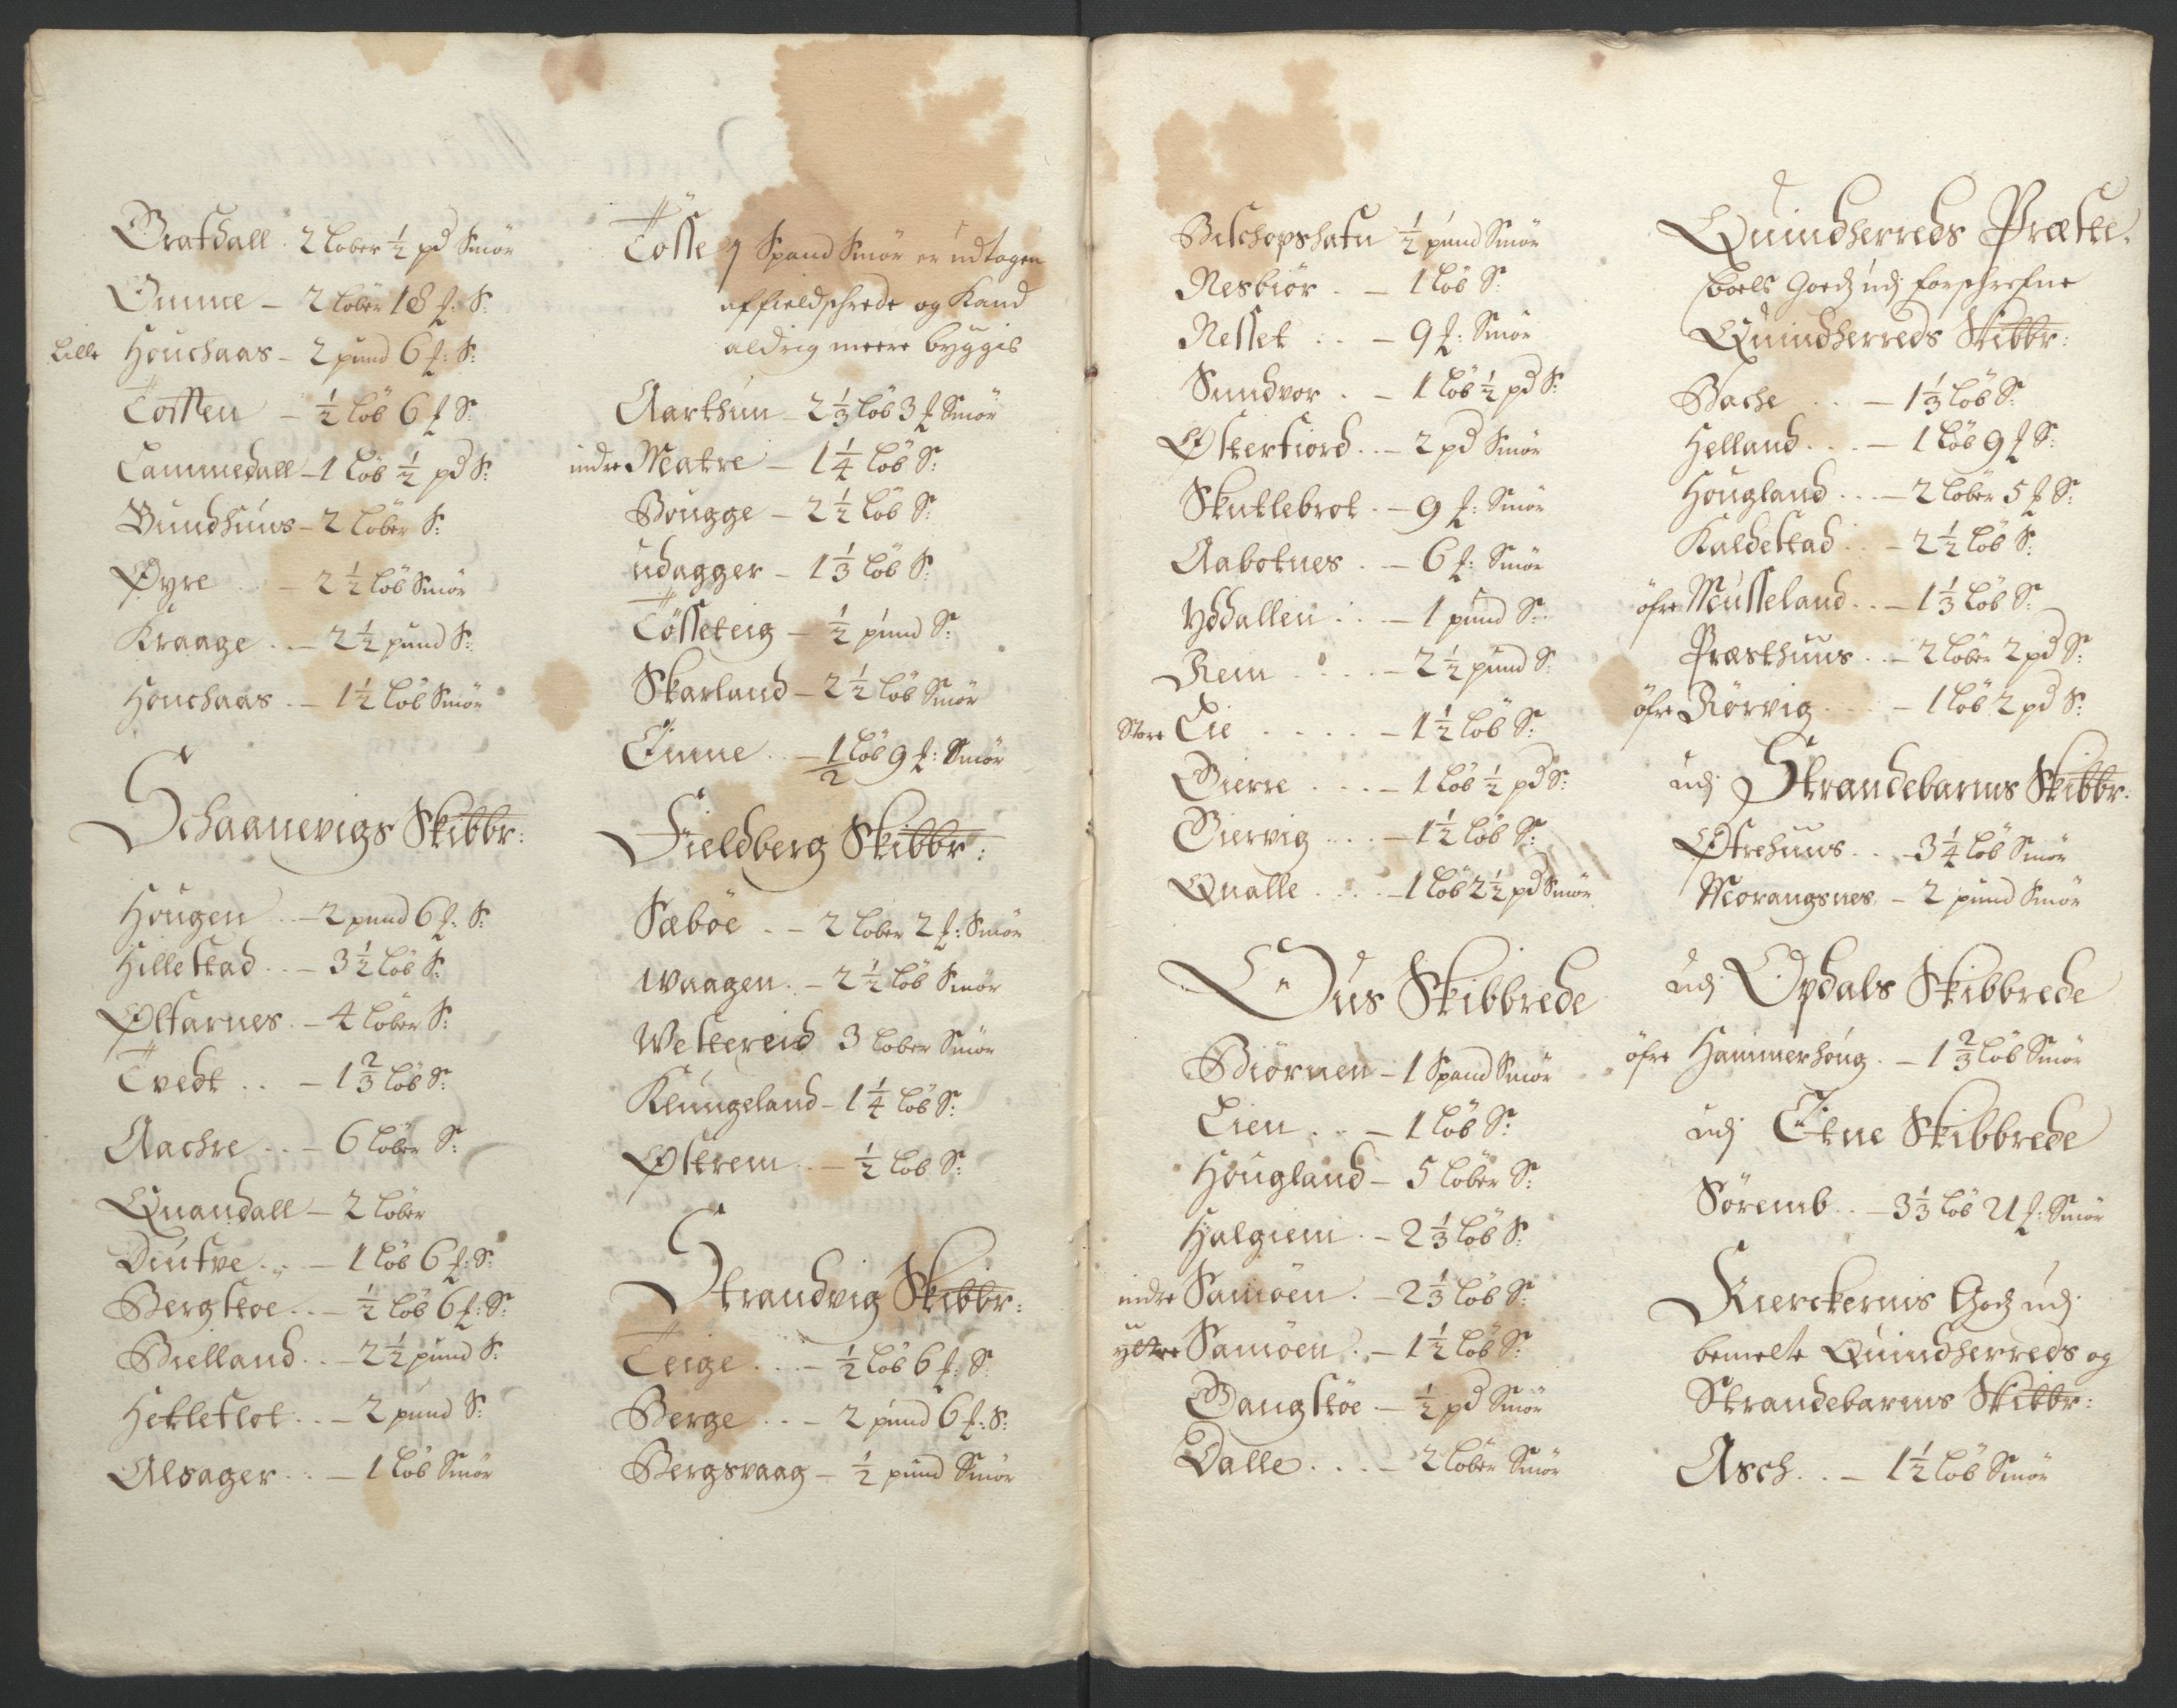 Bratdall . 2 Løber ½ pd Smör
Omme – 2 Løber 18 ƒ: S:
Lille Houchaas – 2 pund 6 ƒ: S:
Toften – ½ Löb 6 ƒ S:
Cammedall – 1 Löb ½ pd S:
Bundhuus – 2 Löber S:
Øyre . . – 2½ Löb Smör
Kraage . – 2½ pund S:
Houchaas . – 1½ Löb Smör
Schaanevigs Skibbr:
Hougen . – 2 pund 6 ƒ: S:
Hillestad . . – 3½ Löb S:
Ølfarnes . – 4 Löber S:
Tvedt . . – 1⅔ Löb S:
Aachre . . – 6 Löber S:
Quandall – 2 Löber
Diutve . . – 1 Löb 6 ƒ: S:
Bergstøe . . – ½ Löb 6 ƒ: S:
Bielland . . – 2½ pund S:
Hetleflot . . – 2 pund S:
Alsager . . – 1 Löb Smör
Tösse 7 Spand Smör er udtagen
af fieldschrede og Kand
aldrig meere byggis
Aarthun – 2⅓ Löb 3 ƒ Smör
indre Matre – 1¼ Löb S:
Bougge – 2½ Löb S:
udagger – 1⅓ Löb S:
Tösseteig – ½ pund S:
Skarland – 2½ Löb Smör
Einne . . – ½ Löb 9 ƒ: Smör
Fieldberg Skibbr:
Sæböe . – 2 Löber 2 ƒ: Smör
Waagen . – 2½ Löb Smör
Wettereid 3 Löber Smör
Klungeland – 1¼ Löb S:
Østrem . . – ½ Löb S:
Strandvig Skibbr:
Teige . . . – ½ Löb 6 ƒ: S:
Berge . . – 2 pund 6 ƒ: S:
Bergsvaag – ½ pund Smör
Bischopshafn ½ pund Smör
Nesbiör . – 1 Löb S:
Nesset . . – 9 ƒ: Smör
Sundvor . – 1 Löb ½ pd S:
Østerfiord . . – 2 pd Smör
Skutlebrot . – 9 ƒ: Smör
Aabotnes . – 6 ƒ: Smör
Yddallen . . – 1 pund S:
Rem . . . – 2½ pund S:
Store Lie . . . . . – 1½ Löb S:
Gierre . . . – 1 Löb ½ pd S:
Giervig . . . – 1½ Löb S:
Qualle . . . – 1 Löb 2½ pd Smör
Ous Skibbrede
Biörnen – 1 Spand Smör
Lien . . – 1 Löb S:
Hougland – 5 Löber S:
Halgiem . – 2⅓ Löb S:
indre Samöen . – 2⅓ Löb S:
yttre Samöen . – 1½ Löb S:
Bangstöe – ½ pd Smör
Dalle . . . – 2 Löber Smör
Quindherreds Præste-
boels Goedz udj forschrefne
Quindherreds Skibbr:
Bache . . – 1⅓ Löb S:
Helland . . . – 1 Löb 9 ƒ S:
Hougland . . . – 2 Löber 5 ƒ S:
Kaldestad . . – 2½ Löb S:
öfre Musseland . . – 1⅓ Löb S:
Præsthuus . . – 2 Löber 2 pd S:
öfre Rörvig . . . – 1 Löb 2 pd S:
udj Strandebarms Skibbr:
Øfrehuus . . – 3¼ Löb Smör
Morangsnes – 2 pund Smör
udj Opdals Skibbrede
öfre Hammerhoug . – 1⅔ Löb Smör
udj Etne Skibbrede
Söremb . . – 3⅓ Löb 21 ƒ: Smör
Kierckernis Godz udj
bemelte Quindherreds og
Strandebarms Skibbr:
Asch . . – 1½ Löb Smör